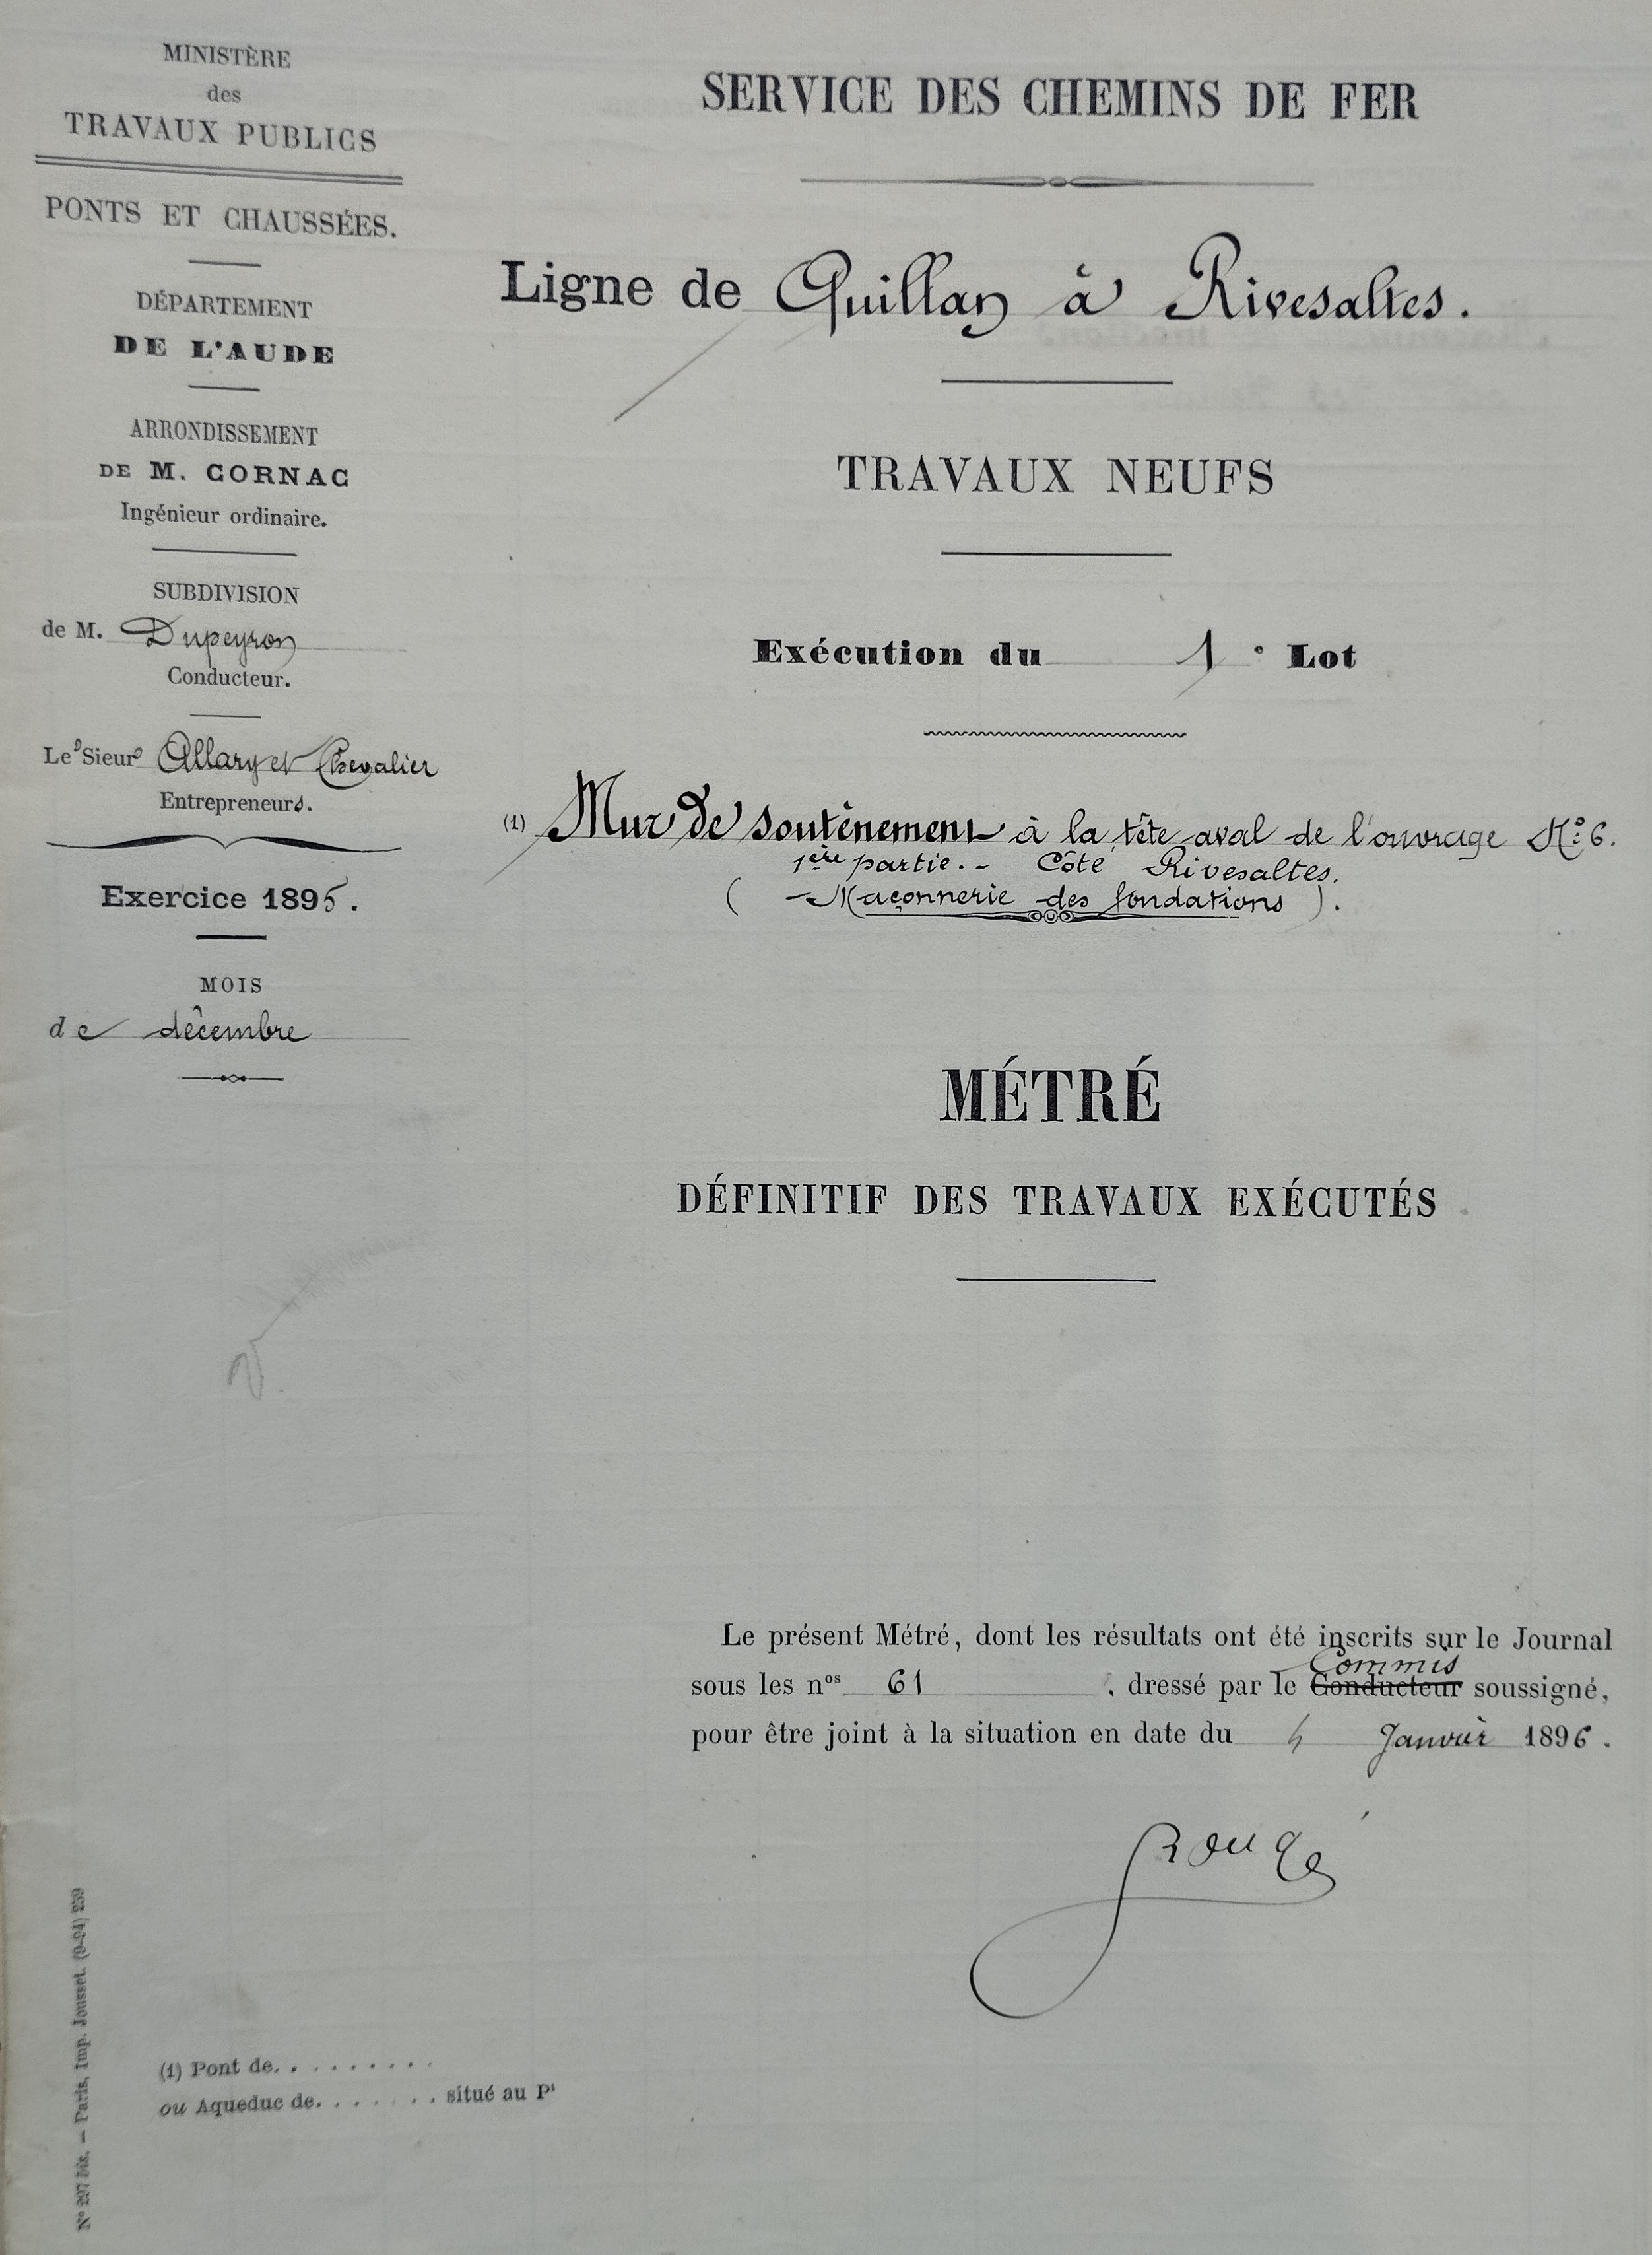 MINISTÈRE
des
TRAVAUX PUBLICS
PONTS ET CHAUSSÉES.
DÉPARTEMENT
DE L'AUDE
ARRONDISSEMENT
DE M. CORNAC
Ingénieur ordinaire.
SUBDIVISION
de M. Dupeyron
Conducteur.
Les Sieurs Allary et Chevalier
Entrepreneurs.
Exercice 1895.
MOIS
de décembre
SERVICE DES CHEMINS DE FER
Ligne de Quillan à Rivesaltes.
TRAVAUX NEUFS
Exécution du 1e Lot
(1) Mur de soutènement à la tête aval de l'ouvrage No 6.
1ère partie. - Côté Rivesaltes.
( Maçonnerie des fondations ).
MÉTRÉ
DÉFINITIF DES TRAVAUX EXÉCUTÉS
Le présent Métré, dont les résultats ont été inscrits sur le Journal
Commis
sous les nos 61 , dressé par le Conducteur soussigné,
pour être joint à la situation en date du 4 Janvier 1896.
Rougé
(1) Pont de. . . . . . . . . .
ou Aqueduc de. . . . . . . . situé au Pt
No 297 bis. — Paris, Imp. Jousset. (9-94) 239